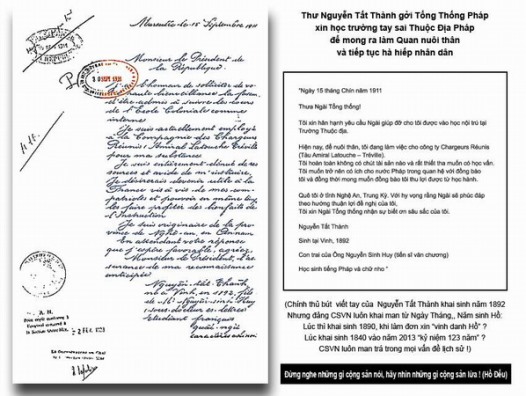 Marseille le 15 Septembre 1911
Monsieur le Président de
la République
J'ai l'honneur de solliciter de votre
haute bienveillance la faveur
d'être admis à suivre les cours
de l'Ecole Coloniale comme
interne
Je suis actuellement employé
à la Compagnie des Chargeurs
Réunis Amiral Latouche Tréville
pour ma subsistance
Je suis entièrement dénué de res-
sources et avide de m'instruire.
Je désirerais devenir utile à la
France vis à vis de mes com-
patriotes et pouvoir en même temps
les faire profiter des bienfaits de
l'Instruction
Je suis originaire de la pro-
vince de Nghê-an, en Annam
En attendant votre réponse
que j'espère favorable, agréez,
Monsieur le Président, l'as-
surance de ma reconnaissance
anticipée
Nguyễn Tất Thành
né à Vinh, en 1892, fils
de Mr Nguyễn Sinh Huy
étudiant français
quốc ngữ
caractères chinois
Thư Nguyễn Tất Thành gởi Tổng Thống Pháp
xin học trường tay sai Thuộc Địa Pháp
để mong ra làm Quan nuôi thân
và tiếp tục hà hiếp nhân dân
"Ngày 15 tháng Chín năm 1911
Thưa Ngài Tổng thống!
Tôi xin hân hạnh yêu cầu Ngài giúp đỡ cho tôi được vào học nội trú tại
Trường Thuộc địa.
Hiện nay, để nuôi thân, tôi đang làm việc cho công ty Chargeurs Réunis
(Tàu Amiral Latouche – Tréville).
Tôi hoàn toàn không có chút tài sản nào và rất thiết tha muốn có học vấn.
Tôi muốn trở nên có ích cho nước Pháp trong quan hệ với đồng bào
tôi và đồng thời mong muốn đồng bào tôi thu lợi được từ học hành.
Quê tôi ở tỉnh Nghệ An, Trung Kỳ. Với hy vọng rằng Ngài sẽ phúc đáp
theo hướng thuận lợi đề nghị của tôi,
Tôi xin Ngài Tổng thống nhận sự biết ơn sâu sắc của tôi.
Nguyễn Tất Thành
Sinh tại Vinh, 1892
Con trai của Ông Nguyễn Sinh Huy (tiến sĩ văn chương)
Học sinh tiếng Pháp và chữ nho "
(Chính thủ bút viết tay của Nguyễn Tất Thành khai sinh năm 1892
Nhưng đảng CSVN luôn khai man từ Ngày Tháng,, Năm sinh Hồ:
Lúc thì khai sinh 1890, khi làm đơn xin "vinh danh Hồ" ?
Lúc khai sinh 1840 vào năm 2013 "kỷ niệm 123 năm" ?
CSVN luôn man trá trong mọi vấn đề lịch sử !)
Đừng nghe những gì cộng sản nói, hãy nhìn những gì cộng sản lừa ! (Hồ Đều)